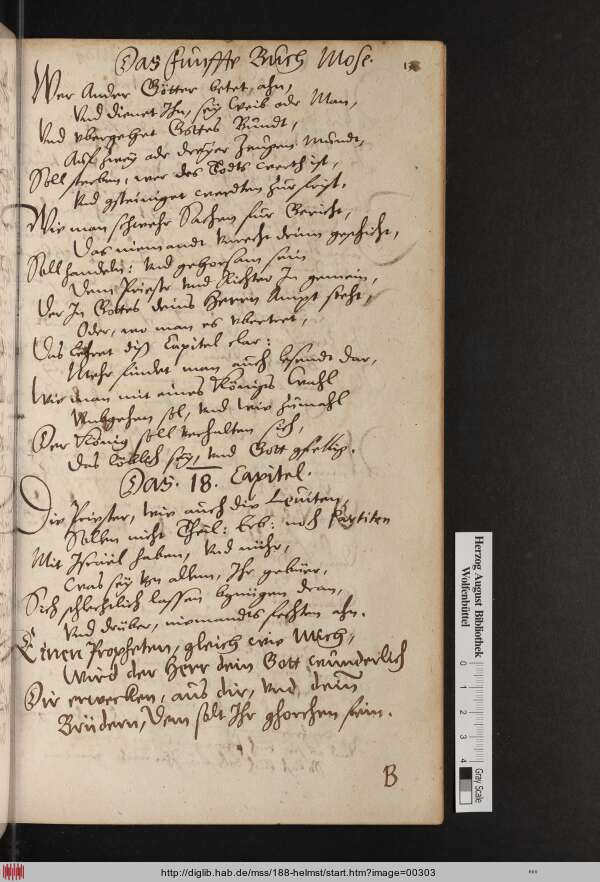 Das fünffte Buch Mose.
Wer Ander Götter betet ahn,
Und dienet Ihr, sey Weib oder Man,
Und ubergehet Gottes Bundt,
Auf zwey oder dreyer Zeugen Mundt,
Soll sterben, wer des Todts werth ist,
Und gsteiniget werdten zur frist.
Wie man schwehr Sachen für Gericht,
Das niemandt Unrecht drinn geschicht,
Soll handeln: Und gehorsam sein
Dem Priester Und Richter In gemein,
Der In Gottes deins Herrn Ampt steht,
Oder, wo man es ubertret,
Das Lehret diß Capitel clar:
Mehr findet man auch hsendt dar,
Wie man mit eines Königs Wahl
Umbgehen sol, Und wie zumahl
Der König soll verhalten sich,
Das löblich sey, Und Gott gfellig.
Das. 18. Capitel.
Die Priester, wie auch die Leuiten,
Sollen nicht Theil: Erb: noch
Mit Israel haben, Und mühr,
Was sey von allem, Ihr gebüer,
Sich schlechtlich lassen bgnügen dran,
Und drüber, niemandts fechten ahn.
Einen Propheten, gleich wie Mich,
Wird der Herr dein Gott wunderlich
Dir erwecken, aus dir, Und dein
Brüdern, Dem solt Ihr ghorchen sein.
B
Herzog August Bibliothek
Wolfenbüttel
0 1 2 3 4
Gray Scale
http://diglib.hab.de/mss/188-helmst/start.htm?image=00303